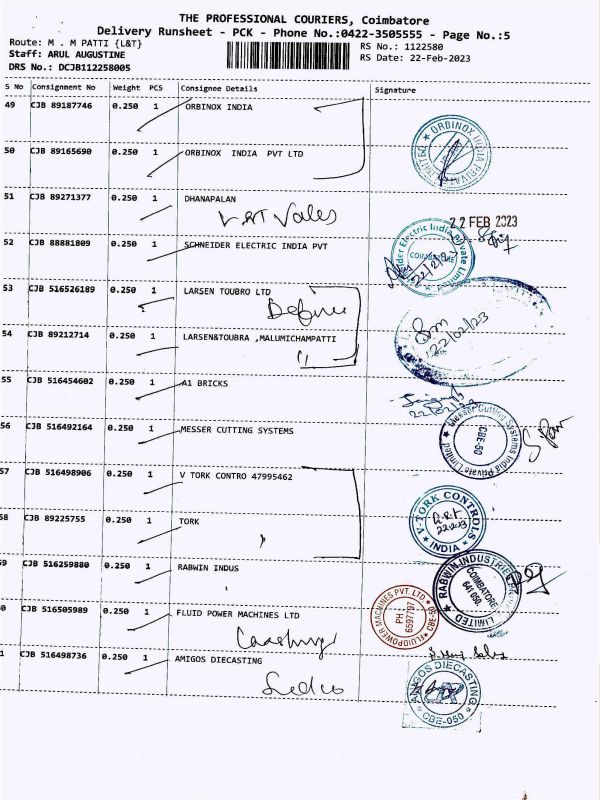 THE PROFESSIONAL COURIERS, Coimbatore
Delivery Runsheet - PCK - Phone No.:0422-3505555 - Page No.:5
Route: M . M PATTI {L&T}
RS No.: 1122580
Staff: ARUL AUGUSTINE
RS Date: 22-Feb-2023
DRS No.: DCJB112258005
S No Consignment No Weight PCS Consignee Details Signature
49 CJB 89187746 0.250 1 ORBINOX INDIA
50 CJB 89165690 0.250 1 ORBINOX INDIA PVT LTD
ORBINOX INDIA PRIVATE LIMITED
51 CJB 89271377 0.250 1 DHANAPALAN
L&T Valves
22 FEB 2023
52 CJB 88881809 0.250 1 SCHNEIDER ELECTRIC INDIA PVT
Electric India Private Limited
COIMBATORE
53 CJB 516526189 0.250 1 LARSEN TOUBRO LTD
Defence
54 CJB 89212714 0.250 1 LARSEN&TOUBRA ,MALUMICHAMPATTI
22/02/23
55 CJB 516454602 0.250 1 A1 BRICKS
22/02/23
56 CJB 516492164 0.250 1 MESSER CUTTING SYSTEMS
Messer Cutting Systems India Private Limited
CBE-50
57 CJB 516498906 0.250 1 V TORK CONTRO 47995462
58 CJB 89225755 0.250 1 TORK
V-TORK CONTROLS
INDIA
59 CJB 516259880 0.250 1 RABWIN INDUS
RABWIN INDUSTRIES LIMITED
COIMBATORE
641 050.
60 CJB 516505989 0.250 1 FLUID POWER MACHINES LTD
FLUIDPOWER MACHINES PVT. LTD. CBE-50
PH
6597797
61 CJB 516498736 0.250 1 AMIGOS DIECASTING
AMIGOS DIECASTING
CBE-050